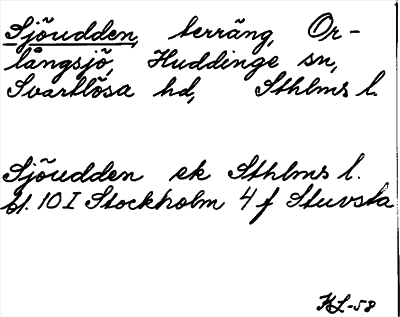 Sjöudden, terräng, Or-
långsjö, Huddinge sn,
Svartlösa hd, Sthlms l.
Sjöudden ek Sthlms l.
bl. 10 I Stockholm 4 f Stuvsta
KL-58